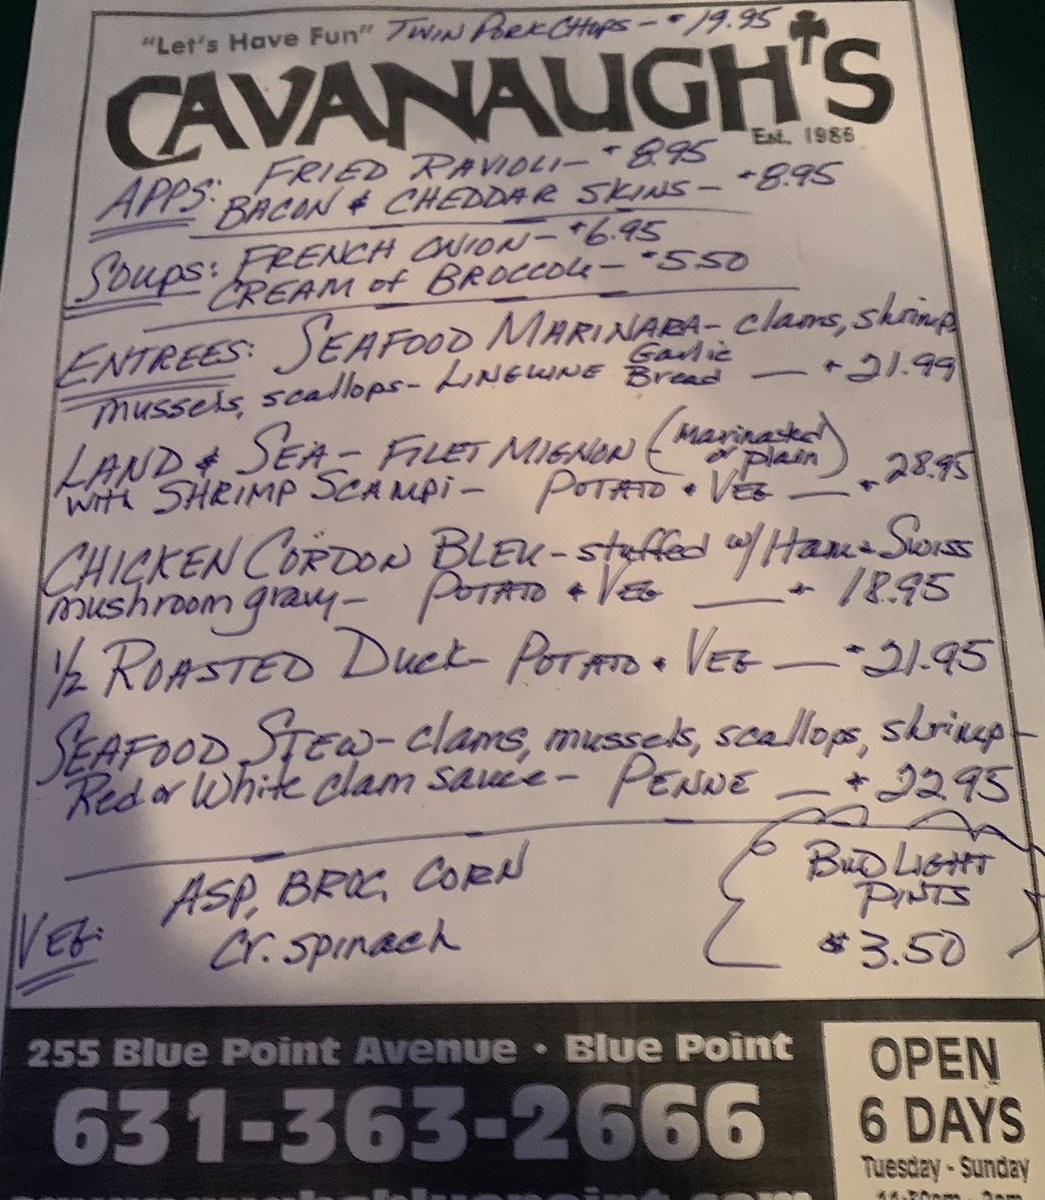 "Let's Have Fun" TWIN PORK CHOPS - $19.95
CAVANAUGH'S
EST. 1986
APPS: FRIED RAVIOLI - $8.95
BACON & CHEDDAR SKINS - $8.95
SOUPS: FRENCH ONION - $6.95
CREAM OF BROCCOLI - $5.50
ENTREES: SEAFOOD MARINARA - clams, shrimp,
mussels, scallops - LINGUINE Garlic Bread — $21.99
LAND & SEA - FILET MIGNON (marinated or plain)
with SHRIMP SCAMPI - POTATO & VEG — $28.95
CHICKEN CORDON BLEU - stuffed w/ Ham & Swiss
mushroom gravy - POTATO & VEG — $18.95
1/2 ROASTED DUCK - POTATO & VEG — $21.95
SEAFOOD STEW - clams, mussels, scallops, shrimp -
Red or White clam sauce - PENNE — $22.95
VEG: ASP, BROC, CORN
Cr. spinach
BUD LIGHT
PINTS
$3.50
255 Blue Point Avenue • Blue Point
631-363-2666
OPEN
6 DAYS
Tuesday - Sunday